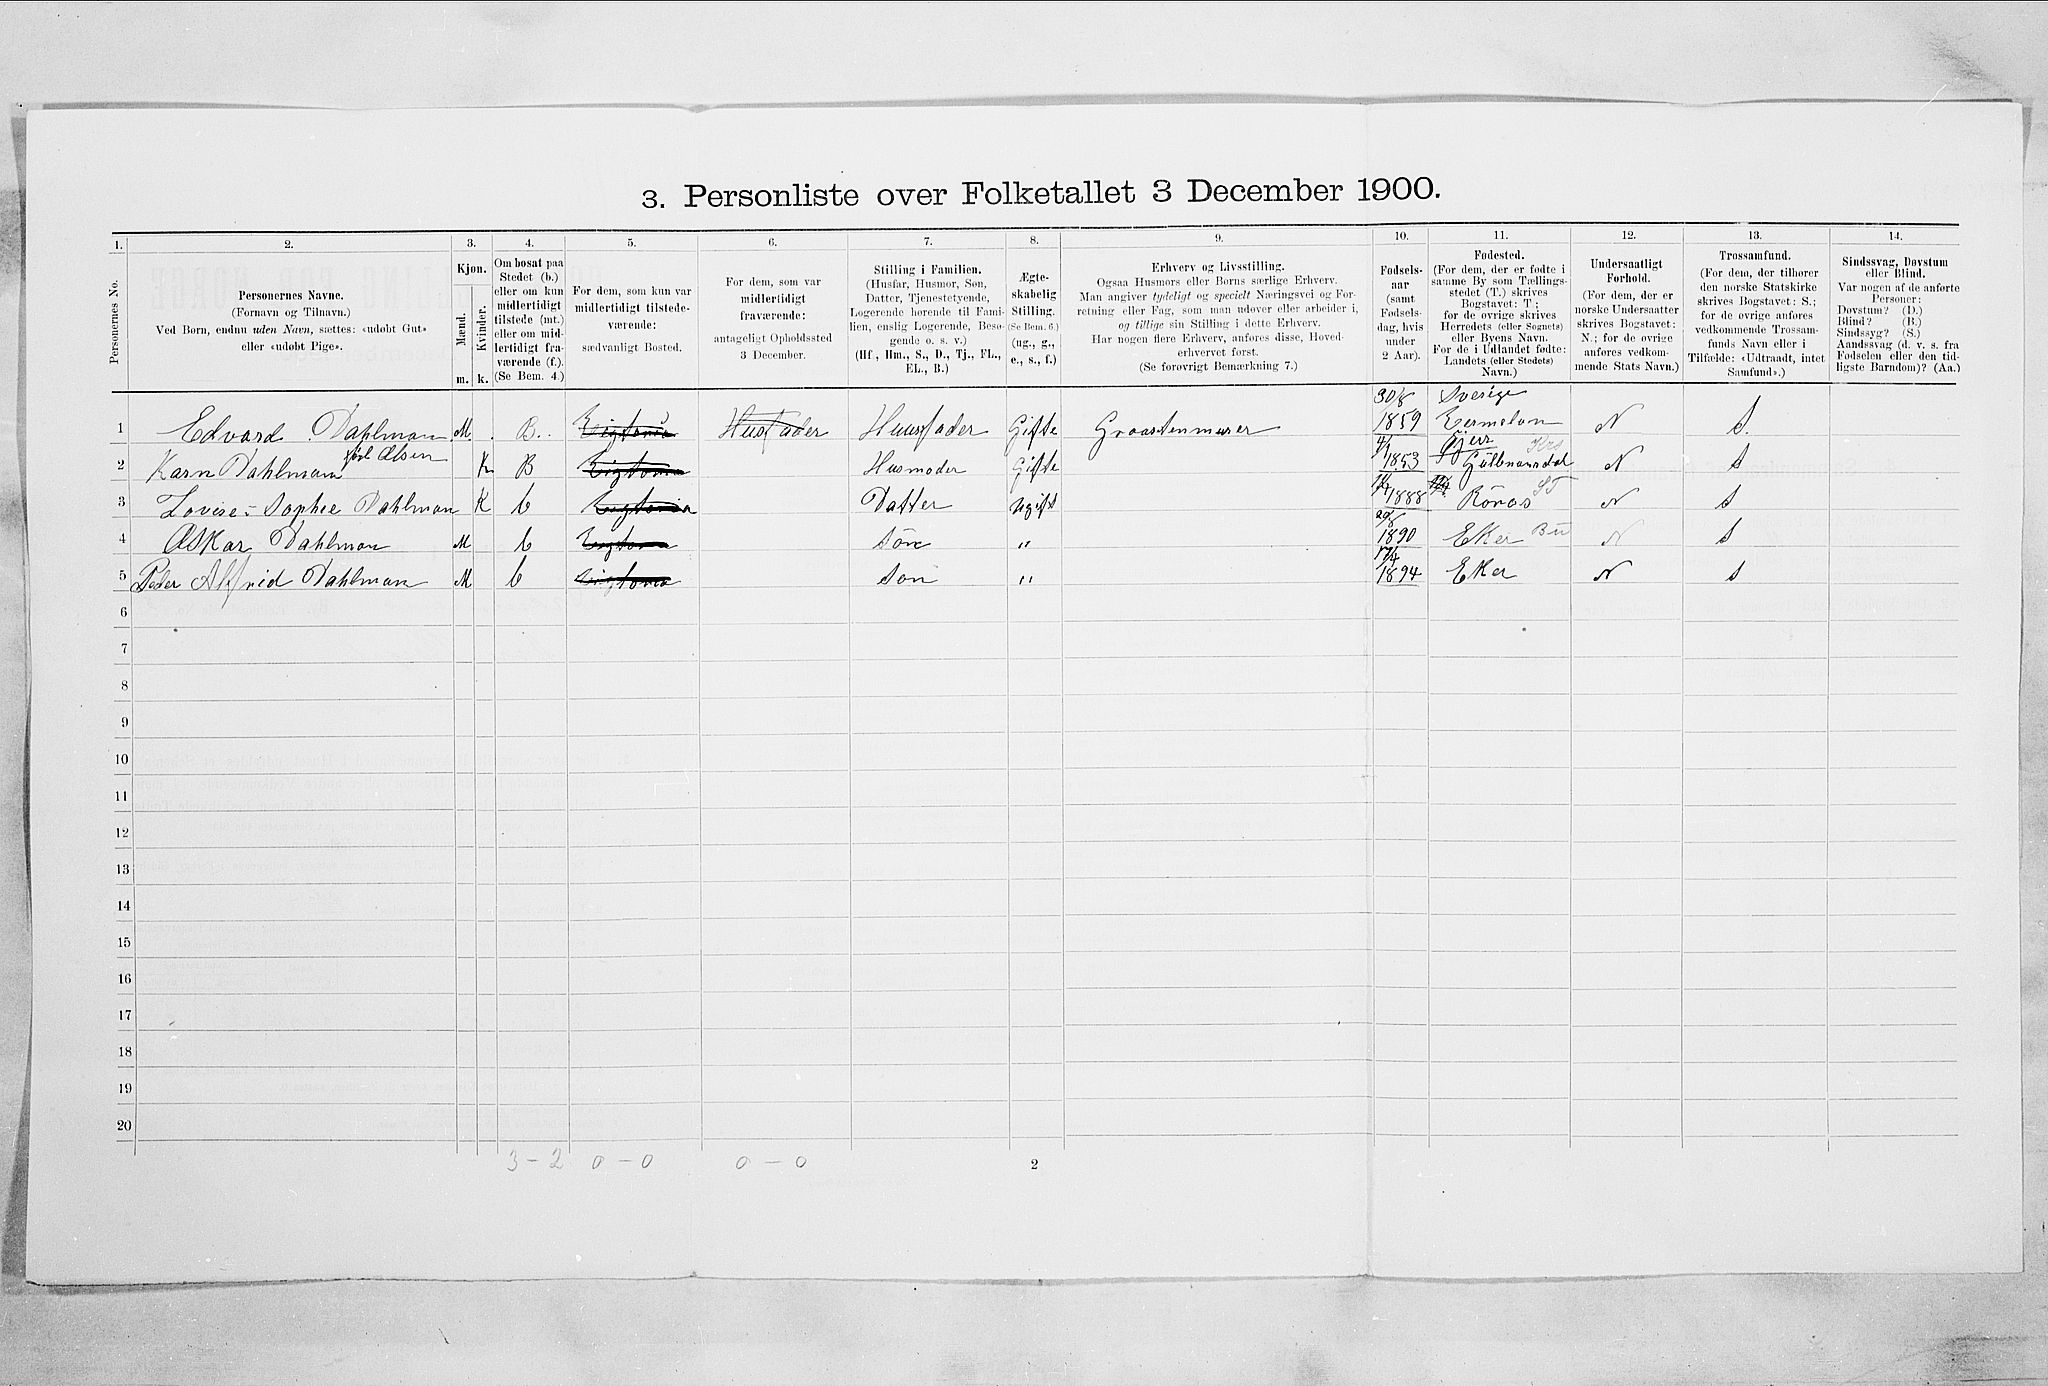 3. Personliste over Folketallet 3 December 1900.
1. 2. 3. 4. 5. 6. 7. 8. 9. 10. 11. 12. 13. 14.
Personernes No.
Personernes Navne.
(Fornavn og Tilnavn.)
Ved Børn, endnu uden Navn, sættes: «udøbt Gut»
eller «udøbt Pige».
Kjøn.
Mænd.
Kvinder.
m. k.
Om bosat paa
Stedet (b.)
eller om kun
midlertidigt
tilstede (mt.)
eller om mid-
lertidigt fra-
værende (f.).
(Se Bem. 4.)
For dem, som kun var
midlertidigt tilstede-
værende:
sædvanligt Bosted.
For dem, som var
midlertidigt
fraværende:
antageligt Opholdssted
3 December.
Stilling i Familien.
(Husfar, Husmor, Søn,
Datter, Tjenestetyende,
Logerende hørende til Fami-
lien, enslig Logerende, Besø-
gende o. s. v.)
(Hf., Hm., S., D., Tj., FL.,
EL., B.)
Ægte-
skabelig
Stilling.
(Se Bem. 6.)
(ug., g.,
e., s., f.)
Erhverv og Livsstilling.
Ogsaa Husmors eller Børns særlige Erhverv.
Man angiver tydeligt og specielt Næringsvei og For-
retning eller Fag, som man udøver eller arbeider i,
og tillige sin Stilling i dette Erhverv.
Har nogen flere Erhverv, anføres disse, Hoved-
erhvervet først.
(Se forøvrigt Bemærkning 7.)
Fødsels-
aar
(samt
Fødsels-
dag, hvis
under
2 Aar).
Fødested.
(For dem, der er fødte i
samme By som Tællings-
stedet (T.) skrives
Bogstavet: T;
for de øvrige skrives
Herredets (eller Sognets)
eller Byens Navn.
For de i Udlandet fødte:
Landets (eller Stedets)
Navn.)
Undersaatligt
Forhold.
(For dem, der er
norske Undersaatter
skrives Bogstavet:
N.; for de øvrige
anføres vedkom-
mende Stats Navn.)
Trossamfund.
(For dem, der tilhører
den norske Statskirke
skrives Bogstavet: S.;
for de øvrige anføres
vedkommende Trossam-
funds Navn eller i
Tilfælde: «Udtraadt, intet
Samfund».)
Sindssvag, Døvstum
eller Blind.
Var nogen af de anførte
Personer:
Døvstum? (D.)
Blind? (B.)
Sindssyg? (S.)
Aandssvag (d. v. s. fra
Fødselen eller den tid-
ligste Barndom)? (Aa.)
1 Edvard Dahlman M B. Husfader Huusfader Gifte Graastenmurer 30/8 1859 Sverige N S.
2 Karn Dahlman Olsen K B Husmoder Gifte 1853 N S
3 Lovise Sophie Dahlman K b Datter ugift 1888 Röros ST N S
4 Oskar Dahlman M b sön " 1890 Eker Bu N S
5 Peder Alfrid Dahlman M b son " 17/4 1894 Eker N S
6
7
8
9
10
11
12
13
14
15
16
17
18
19
20
3 - 2 0 - 0 0 - 0 2